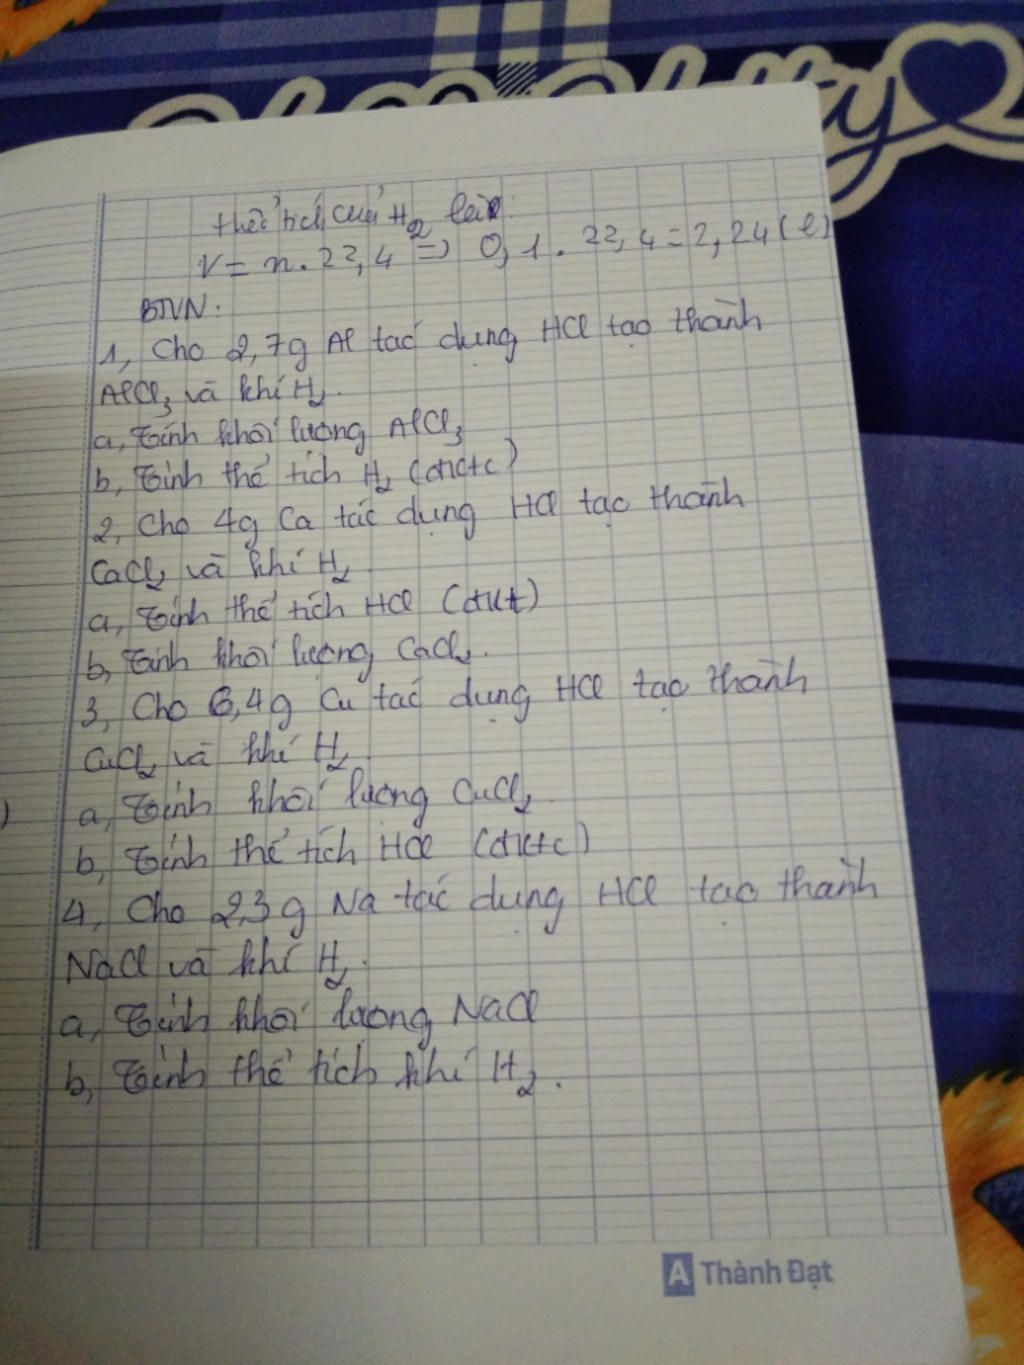 thể tích của H2 là:
V = n . 22,4 => 0,1 . 22,4 = 2,24 (l)
BTVN:
1, Cho 2,7g Al tác dụng HCl tạo thành
AlCl3 và khí H2.
a, Tính khối lượng AlCl3
b, Tính thể tích H2 (đktc)
2, Cho 4g Ca tác dụng HCl tạo thành
CaCl2 và khí H2
a, Tính thể tích HCl (đkt)
b, Tính khối lượng CaCl2.
3, Cho 6,4g Cu tác dụng HCl tạo thành
CuCl2 và khí H2
a, Tính khối lượng CuCl2
b, Tính thể tích HCl (đktc)
4, Cho 2,3g Na tác dụng HCl tạo thành
NaCl và khí H2.
a, Tính khối lượng NaCl
b, Tính thể tích khí H2.
A Thành Đạt